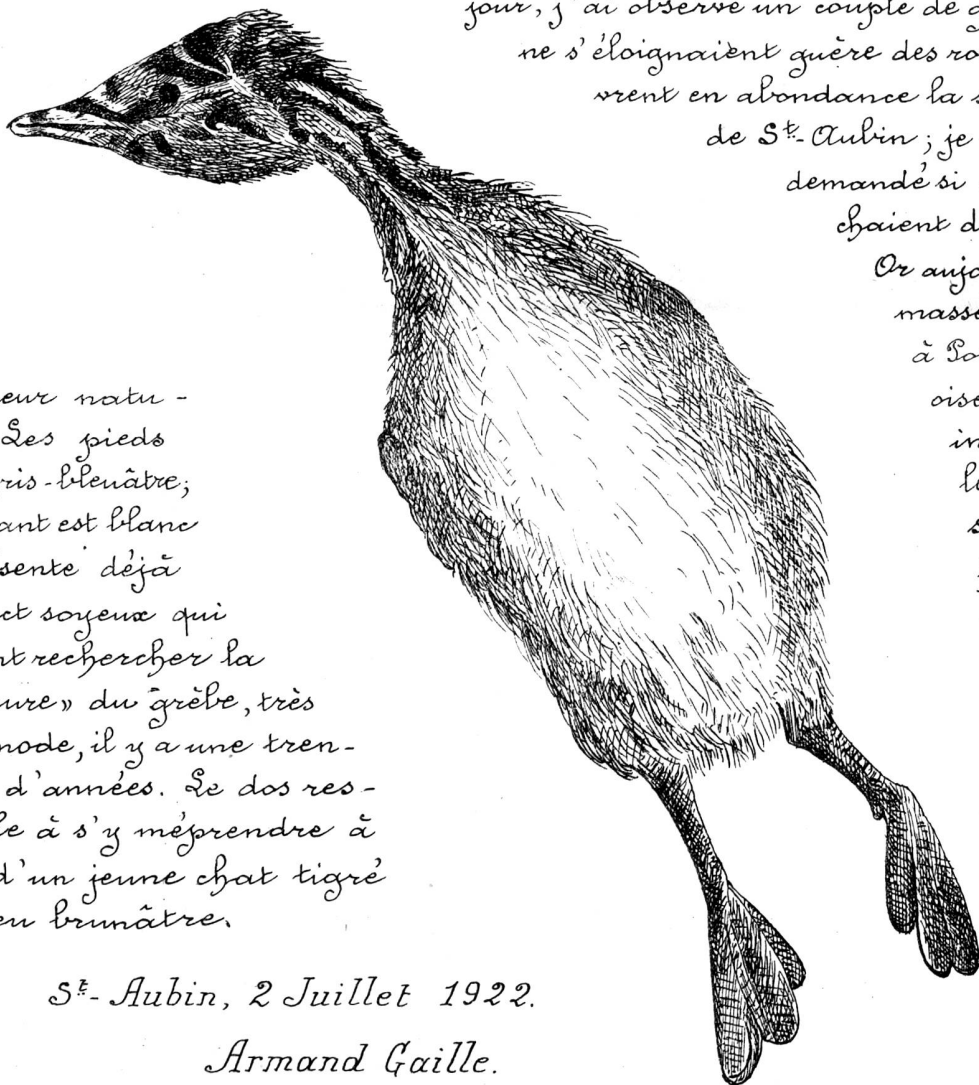 jour, j'ai observé un couple de
ne s'éloignaient guère des
vrent en abondance la
de St-Aubin ; je
demandé si
chaient
Or
à
eur natu-
Les pieds
ris-bleuâtre;
ant est blanc
sente déjà
ct soyeux qui
nt rechercher la
ure» du grèbe, très
mode, il y a une tren-
d'années. Le dos res-
le à s'y méprendre à
d'un jeune chat tigré
eu brunâtre.
St-Aubin, 2 Juillet 1922.
Armand Gaille.